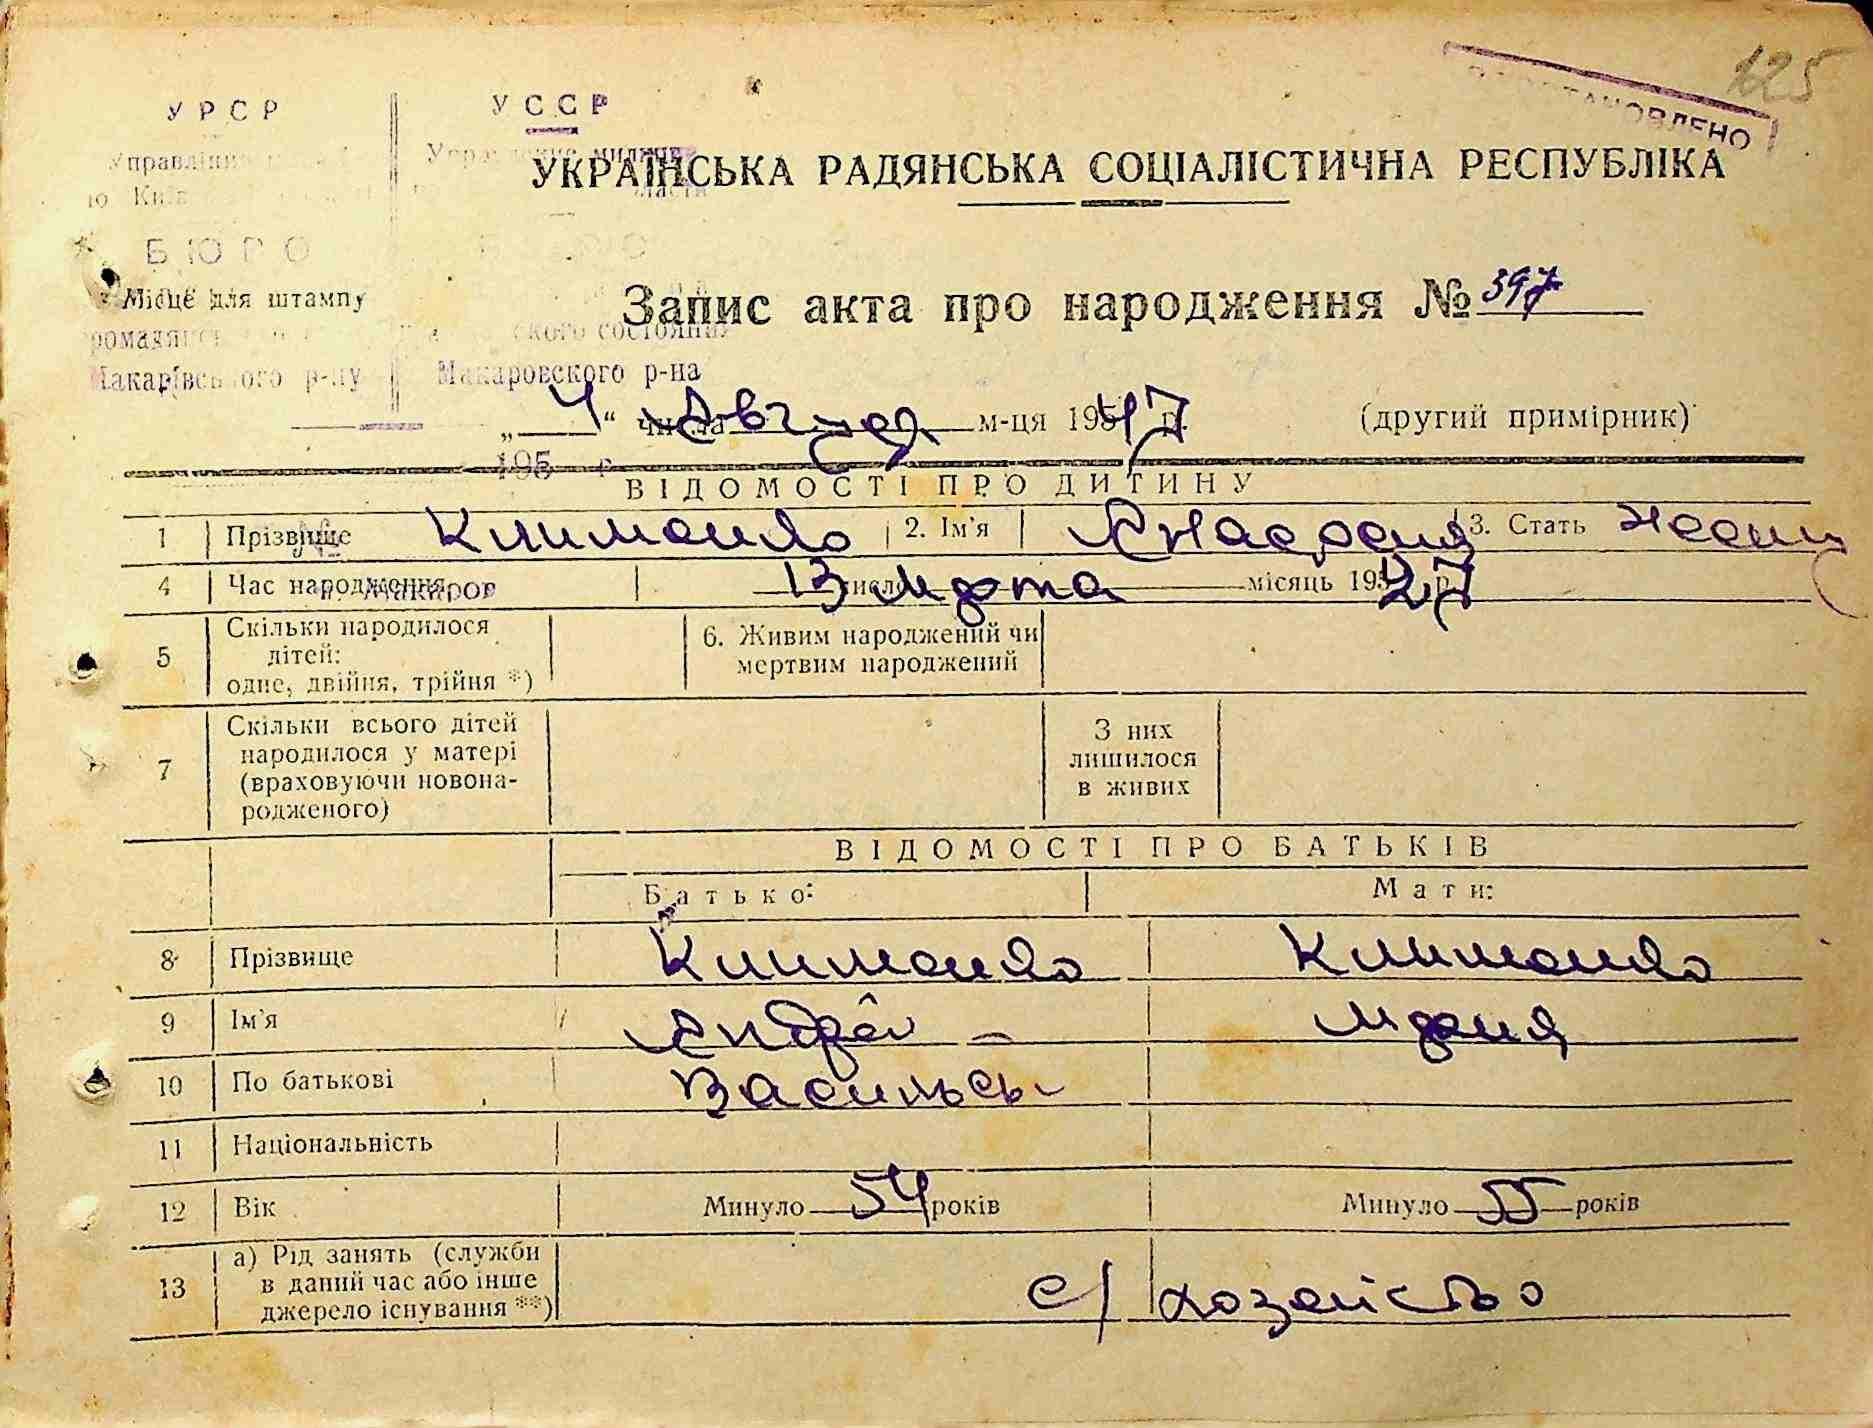 125
УРСР УССР
ВОССТАНОВЛЕНО
УКРАЇНСЬКА РАДЯНСЬКА СОЦІАЛІСТИЧНА РЕСПУБЛІКА
БЮРО
Місце для штампу
Запис акта про народження № 397
Макарівського р-ну Макаровского р-на
„ 4 “ числа Август м-ця 1947 р. (другий примірник)
195 г.
ВІДОМОСТІ ПРО ДИТИНУ
1 Прізвище 2. Ім'я 3. Стать
4 Час народження 13 число марта місяць 1927 р.
Макаров
5 Скільки народилося дітей: одне, двійня, трійня *) 6. Живим народжений чи мертвим народжений
7 Скільки всього дітей народилося у матері (враховуючи новонародженого) З них лишилося в живих
ВІДОМОСТІ ПРО БАТЬКІВ
Батько: Мати:
8 Прізвище
9 Ім'я Андрей – Мария
10 По батькові
11 Національність
12 Вік Минуло 54 років Минуло 55 років
13 а) Рід занять (служби в даний час або інше джерело існування **) с/хозяйство